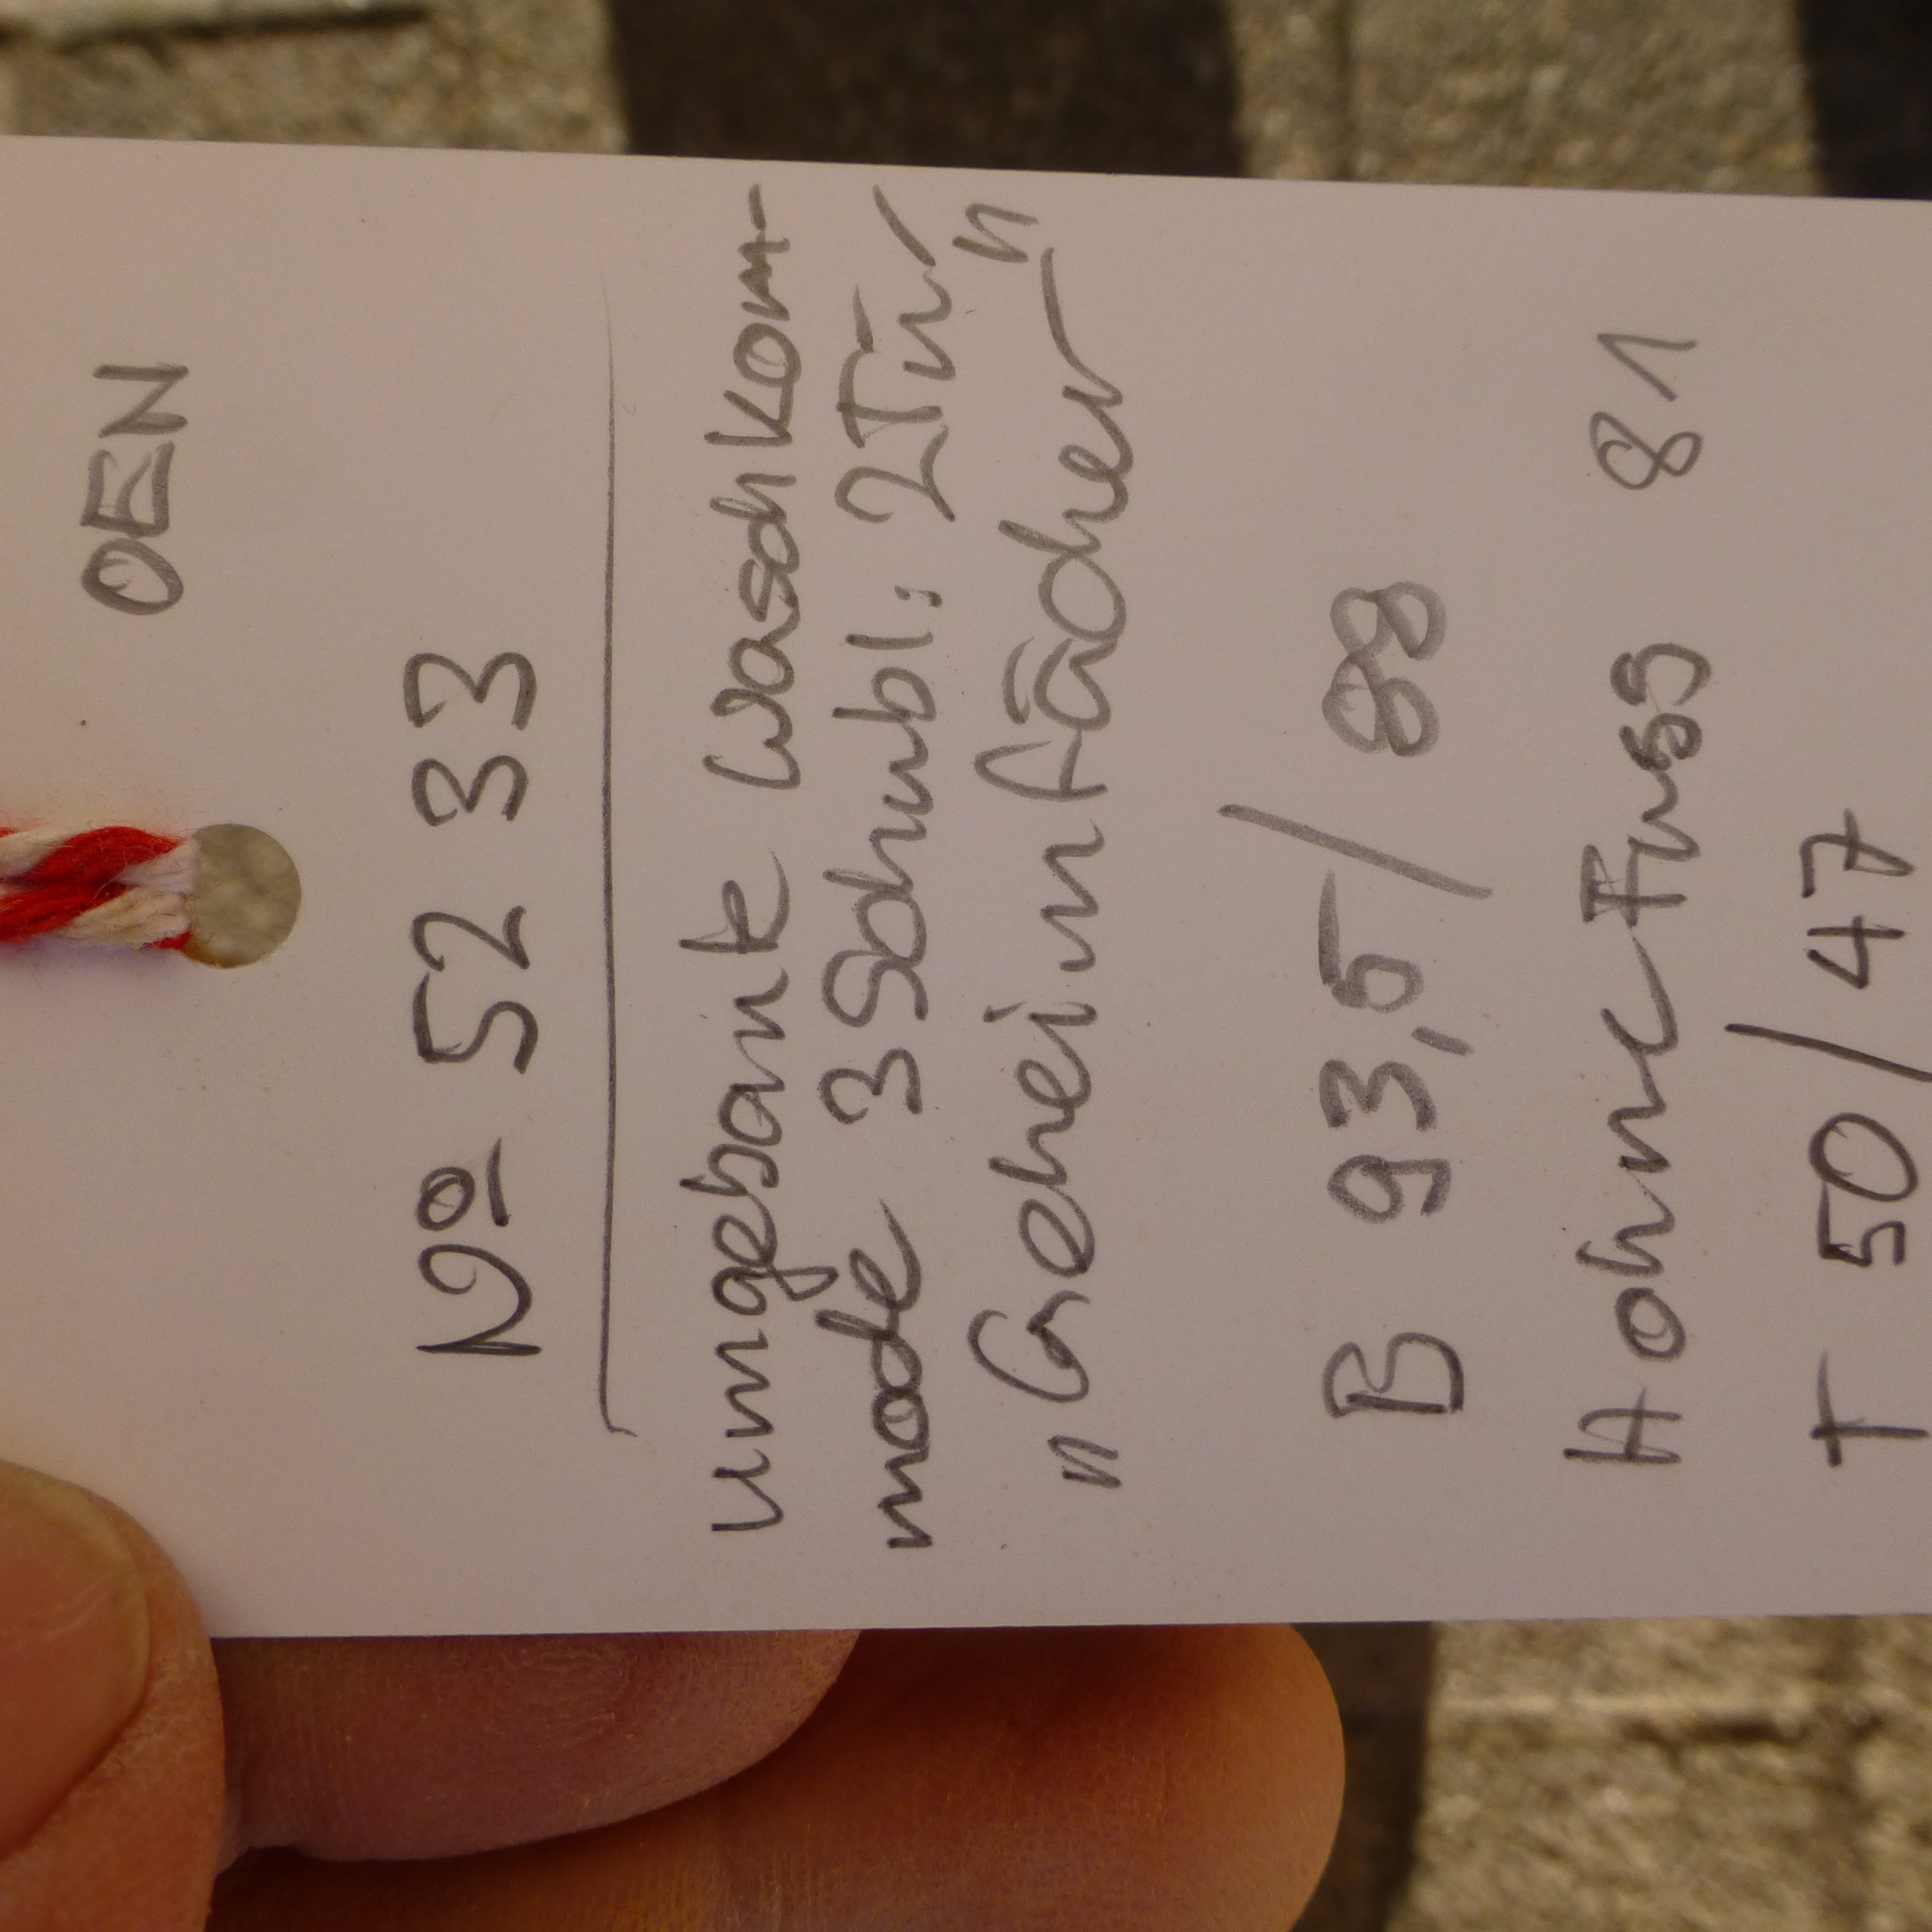 OEN
Nº 52 33
umgebaute Waschkom-
mode 3 Schubl: 2 Tür
"Geheimfächer"
B 93,5 / 88
H ohne Fuss 81
T 50 / 47